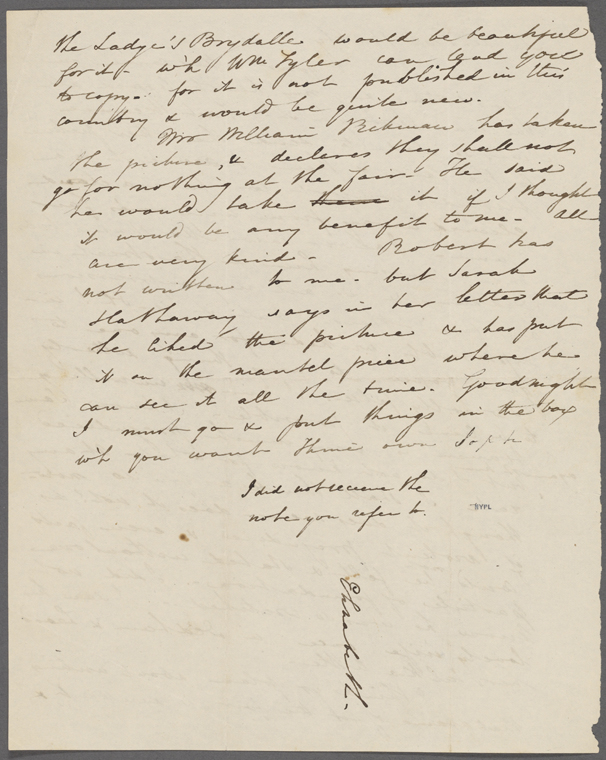 The Ladye's Brydalle would be beautiful
for it - wh Wm Tyler can lend you
to copy - for it is not published in this
country & would be quite new.
Mrs William Rikman has taken
the picture, & declares they shall not
go for nothing at the fair - He said
he would take it if I thought
it would be any benefit to me - All
are very kind - Robert has
not written to me - but Sarah
Hathaway says in her letter that
he liked the picture & has put
it on the mantel piece where he
can see it all the time. Goodnight
I must go & put things in the box
wh you want Thine own
I did not receive the
note you refer to.
NYPL
Elizabeth -